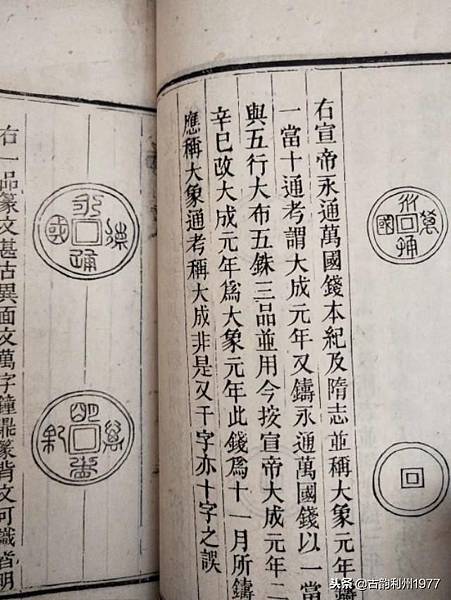 永通萬國
右宣帝永通萬國錢本紀及隋志並稱大象元年鑄
一當十通考謂大成元年又鑄永通萬國錢以一當
與五行大布五銖三品並用今按宣帝大成元年二
辛巳改大成元年爲大象元年此錢爲十一月所鑄
應稱大象通考稱大成非是又千字亦十字之誤
永通萬國
右一品篆文甚古異面文萬字鐘鼎篆背文可識者明
头条 @古韵利州1977